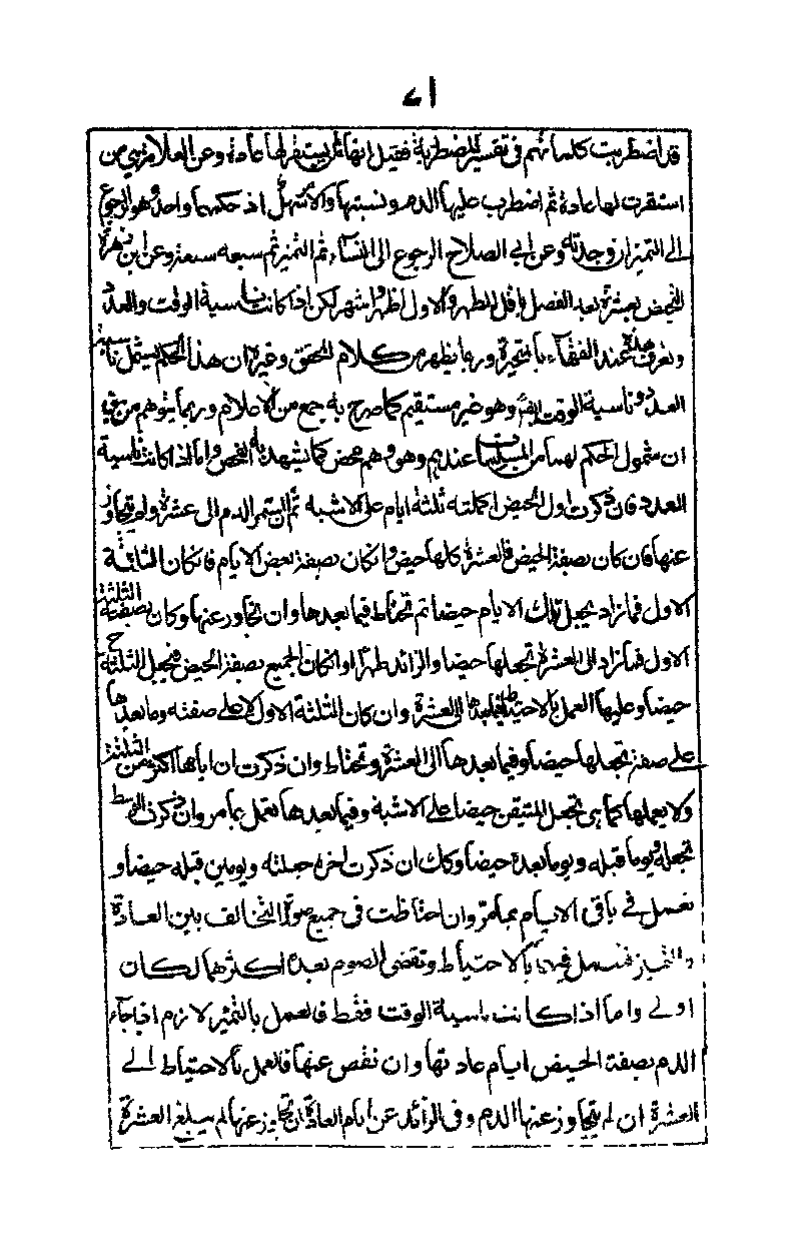 ٧١
قد اضطربت كلماتهم فى تفسير المضطربة فقيل انها لم يستقر لها عادة وعن العلامة هى من
استقرت لها عادة ثم اضطرب عليها الدم ونسيتها والامر سهل اذ حكمهما واحد وهو الرجوع
الى التميز ان وجدته وعن ابى الصلاح الرجوع الى النساء ثم التميز ثم سبعة سبعة وعن ابن زهرة
التحيض بعشرة بعد الفصل باقل الطهر والاول اظهر واشهر لكن اذا كانت ناسية الوقت والعدد
وتعرف هذه عند الفقهاء بالمتحيرة وربما يظهر من كلام المحقق وغيره ان هذا الحكم يشمل ناسية
العدد وناسية الوقت ايضا وهو غير مستقيم كما صرح به جمع من الاعلام وربما يتوهم من
ان شمول الحكم لهما من عندهم وهو وهم محض كما يشهد له الفحص واما اذا كانت ناسية
العدد فان ذكرت اول الحيض اكملته ثلثة ايام على الاشبه ثم ان استمر الدم الى عشرة ولم يتجاوز
عنها فان كان بصفة الحيض فالعشرة كلها حيض وان كان بصفة بعض الايام فان كان الثلثة
الاول فما زاد يجعل تلك الايام حيضا ثم تحتاط فيما بعدها وان تجاوز عنها وكان بصفة الثلثة
الاول فما زاد الى العشرة تجعلها حيضا والزائد طهرا وان كان الجميع بصفة الحيض فتجعل الثلثة ح
حيضا وعليها العمل بالاحتياط فيما بعدها الى العشرة وان كان الثلثة الاول لا على صفته وما بعدها
على صفته تجعلها حيضا وفيما بعدها الى العشرة وتحتاط وان ذكرت ان ايامها اكثر من الثلثة
ولا يعملها كما هى تجعل المتيقن حيضا على الاشبه وفيما بعدها تعمل بما مر وان ذكرت الوسط
تجعله ويوما قبله ويوما بعده حيضا وكك ان ذكرت اخره جعلته ويومين قبله حيضا و
تعمل فى باقى الايام بما مر وان احتاطت فى جميع صورة التخالف بين العادة
والتميز فتعمل فيهما بالاحتياط وتقضى الصوم بعدد اكثرهما لكان
اولى واما اذا كانت ناسية الوقت فقط فالعمل بالتميز لازم اذا جاء
الدم بصفة الحيض ايام عادتها وان نقص عنها فالعمل بالاحتياط الى
العشرة ان لم يتجاوز عنها الدم وفى الزائد عن ايام العادة ان تجاوز عنها لم يبلغ العشرة